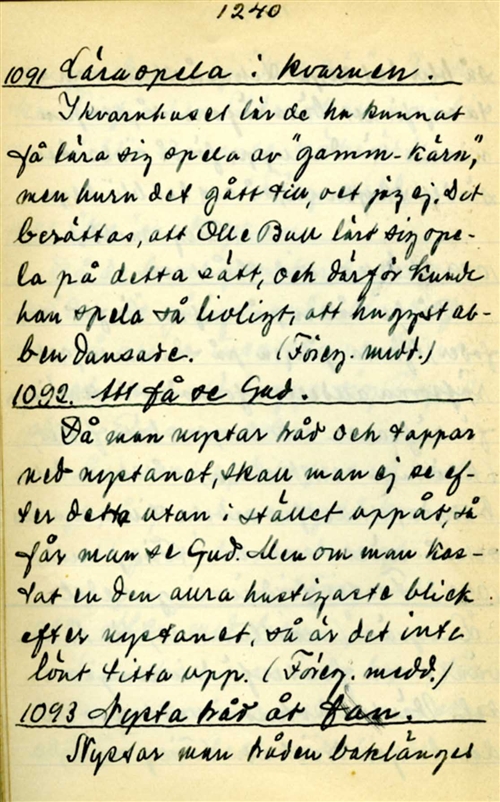 1240
1091 Lära spela i kvarnen.
I kvarnhuset lär de ha kunnat
få lära sig spela av "gamm-kärn",
men huru det gått till, vet jag ej. Det
berättas, att Olle Bull lärt sig spe-
la på detta sätt, och därför kunde
han spela så livligt, att
ben dansade. (Föreg. medd.)
1092. Att få se Gud.
Då man nystar tråd och tappar
ned nystanet, skall man ej se ef-
ter detta utan i stället uppåt, så
får man se Gud. Men om man kas-
tat en den allra hastigaste blick
efter nystanet, så är det inte
lönt titta upp. (Föreg. medd.)
1093 Nysta tråd åt fan.
Nystar man tråden baklänges